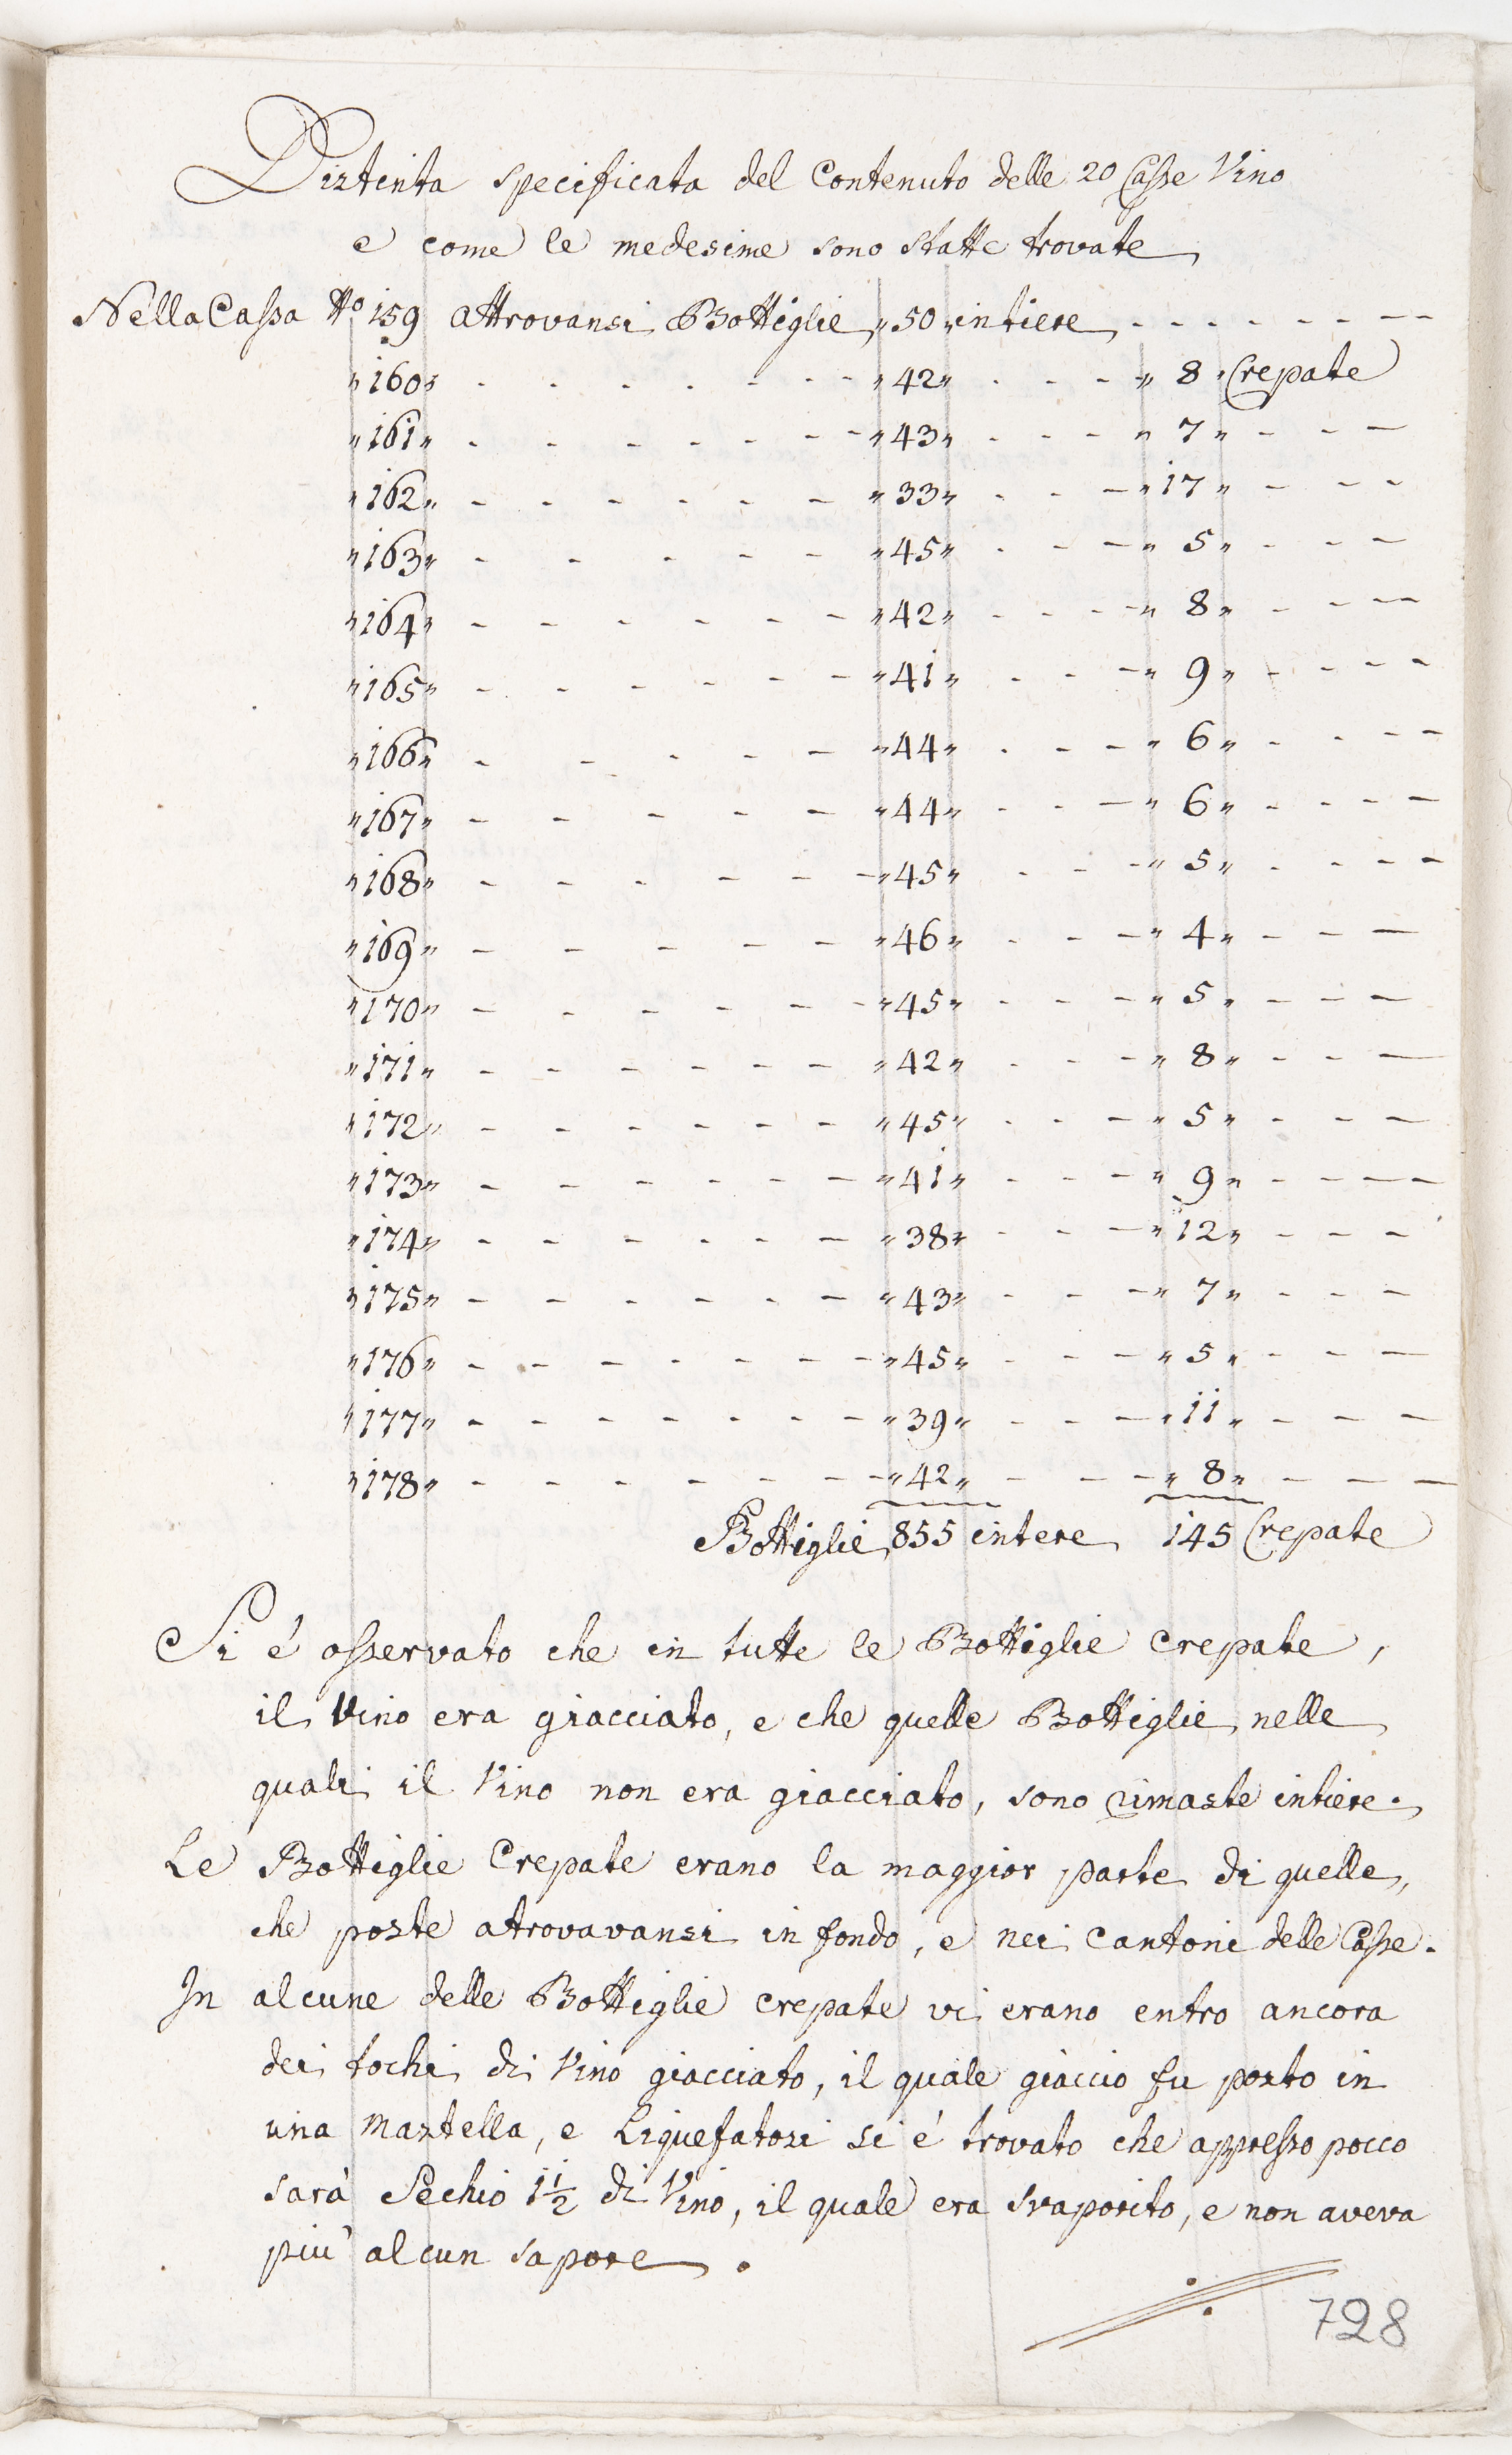 Distinta specificata del Contenuto delle 20 Casse Vino
e come le medesime sono Statte trovate
Nella Cassa No 159 attrovansi Bottiglie „ 50 „ intiere - - - - - - - -
„ 160 „ - - - - - - - „ 42 „ - - - „ 8 „ Crepate
„ 161 „ - - - - - - - „ 43 „ - - - - „ 7 „ - - -
„ 162 „ - - - - - - „ 33 „ - - - „ 17 „ - - -
„ 163 „ - - - - - - „ 45 „ - - - „ 5 „ - - -
„ 164 „ - - - - - - „ 42 „ - - - - „ 8 „ - - -
„ 165 „ - - - - - - „ 41 „ - - - „ 9 „ - - - -
„ 166 „ - - - - - „ 44 „ - - - „ 6 „ - - - -
„ 167 „ - - - - - „ 44 „ - - - „ 6 „ - - - -
„ 168 „ - - - - - - „ 45 „ - - - „ 5 „ - - - -
„ 169 „ - - - - - „ 46 „ - - - „ 4 „ - - -
„ 170 „ - - - - - - „ 45 „ - - - „ 5 „ - - -
„ 171 „ - - - - - - „ 42 „ - - - „ 8 „ - - -
„ 172 „ - - - - - - „ 45 „ - - - „ 5 „ - - -
„ 173 „ - - - - - - „ 41 „ - - - „ 9 „ - - - -
„ 174 „ - - - - - - „ 38 „ - - - „ 12 „ - - -
„ 175 „ - - - - - - „ 43 „ - - - „ 7 „ - - -
„ 176 „ - - - - - - - „ 45 „ - - - „ 5 „ - - -
„ 177 „ - - - - - - - „ 39 „ - - - „ 11 „ - - -
„ 178 „ - - - - - - - „ 42 „ - - - „ 8 „ - - -
Bottiglie 855 intere 145 Crepate
Si é osservato che in tutte le Bottiglie crepate,
il Vino era giacciato, e che quelle Bottiglie nelle
quali il Vino non era giacciato, sono rimaste intiere.
Le Bottiglie Crepate erano la maggior parte di quelle,
che poste atrovavansi in fondo, e nei Cantoni delle Casse.
In alcune delle Bottiglie crepate vi erano entro ancora
dei tochi di Vino giacciato, il quale giaccio fu posto in
una Mastella, e Liquefatosi si é trovato che appresso pocco
sarà Sechio 1½ di Vino, il quale era svaporito, e non aveva
piu' alcun sapore.
728